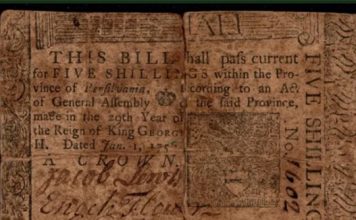 THIS BILL shall pass current
for FIVE SHILLINGS within the Pro-
vince of Pensilvania, according to an Act
of General Assembly of the said Province,
made in the 29th Year of
the Reign of King GEORGE
II. Dated Jan. 1, 1756
A CROWN.
Jacob Lewis
Enoch Flower
FIVE SHILLING
No. 1602